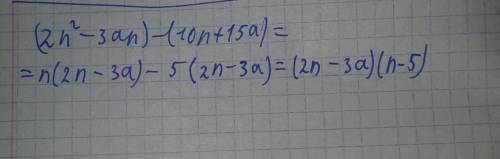 (2n²-3an)-(10n+15a)=
=n(2n-3a)-5(2n-3a)=(2n-3a)(n-5)